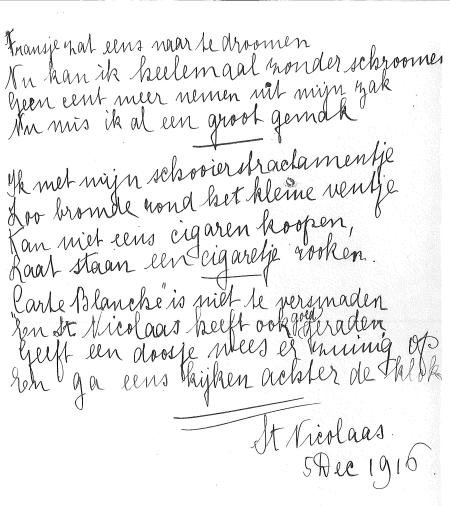 Fransje zat eens naar te droomen
Nu kan ik heelemaal zonder schroomen
Geen cent meer nemen uit mijn zak
Nu mis ik al een groot gemak
Ik met mijn schooierstractamentje
Zoo bromde rond het kleine ventje
Kan niet eens cigaren koopen,
Laat staan een cigaretje rooken.
"Carte Blanche" is niet te versmaden
En St Nicolaas heeft ook goed geraden
Geeft een doosje wees er zuinig op
En ga eens kijken achter de klok
St Nicolaas.
5 Dec 1916.